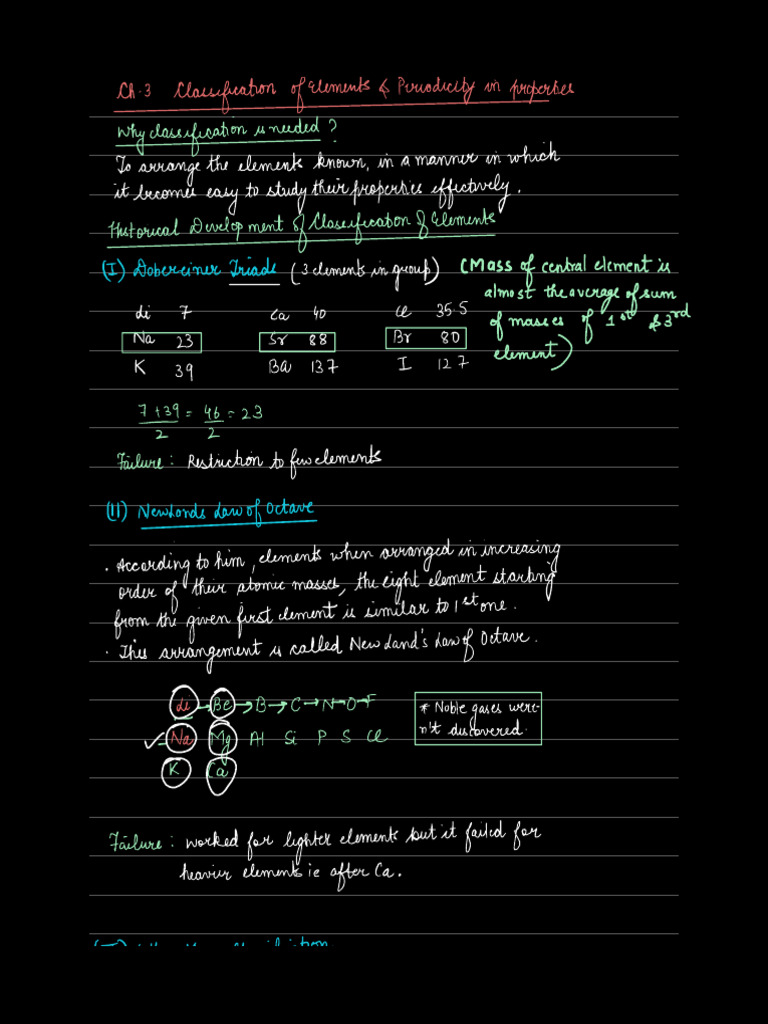 Ch-3 Classification of Elements & Periodicity in properties
Why classification is needed ?
To arrange the elements known, in a manner in which
it becomes easy to study their properties effectively.
Historical Development of Classification of Elements
(I) Dobereiner Triads (3 elements in group) (Mass of central element is
almost the average of sum
of masses of 1st & 3rd
element)
Li 7 Ca 40 Cl 35.5
Na 23 Sr 88 Br 80
K 39 Ba 137 I 127
7+39 = 46 = 23
2 2
Failure : Restriction to few elements
(II) Newlands Law of Octave
. According to him, elements when arranged in increasing
order of their atomic masses, the eight element starting
from the given first element is similar to 1st one.
. This arrangement is called NewLand's Law of Octave.
Li → Be → B → C → N → O → F
✓ Na Mg Al Si P S Cl
K Ca
* Noble gases were-
n't discovered.
Failure : Worked for lighter elements but it failed for
heavier elements ie after Ca.